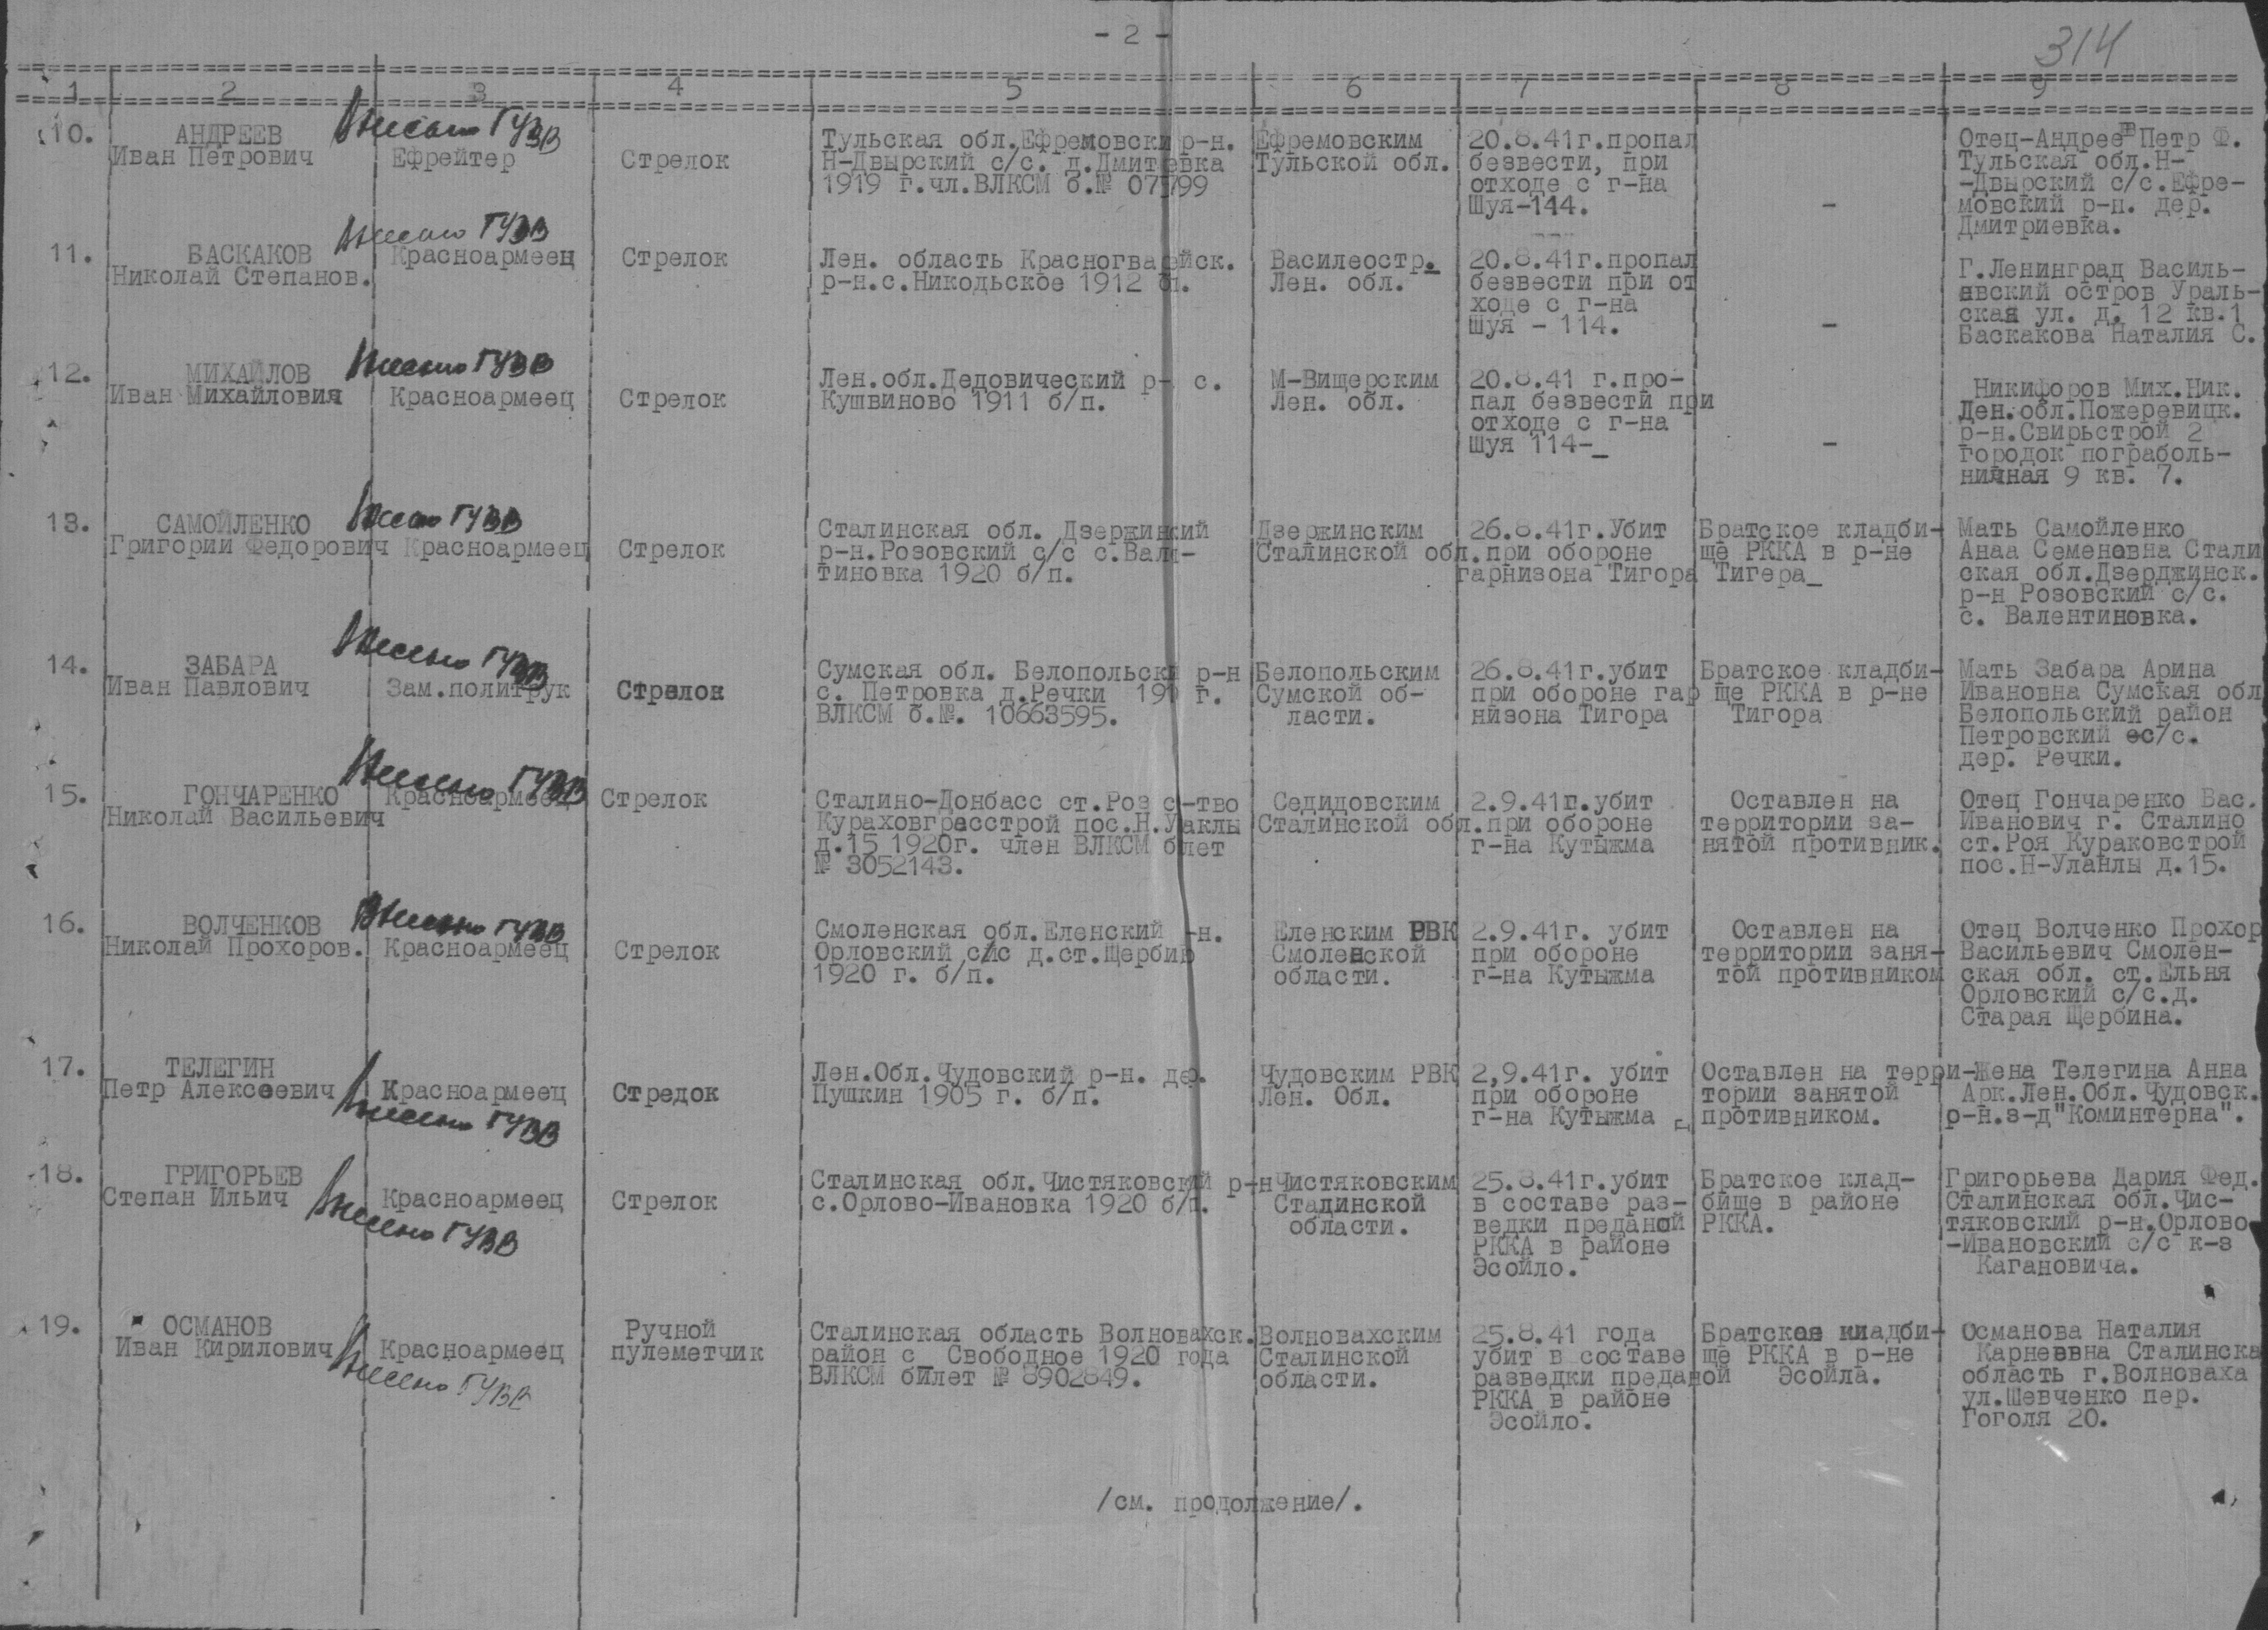 - 2 -
314
1 2 3 4 5 6 7 8 9
10. АНДРЕЕВ
Иван Петрович
Внесено ГУВВ
Ефрейтер
Стрелок
Тульская обл.Ефремовски р-н.
Н-Двырский с/с. д.Дмит евка
1919 г.чл.ВЛКСМ б.№
Ефремовским
Тульской обл.
20.8.41г.пропал
безвести, при
отходе с г-на
Шуя-144.
-
Отец-Андреев Петр Ф.
Тульская обл.Н-
-Двырский с/с.Ефре-
мовский р-н. дер.
Дмитриевка.
11. БАСКАКОВ
Николай Степанов.
Внесено ГУВВ
Красноармеец
Стрелок
Лен. область Красногва ейск.
р-н.с.Никодьское 1912
Василеостр.
Лен. обл.
20.8.41г.пропал
безвести при от
ходе с г-на
Шуя - 114.
-
Г.Ленинград Василь-
евский остров Ураль-
ская ул. д. 12 кв.1
Баскакова Наталия С.
12. МИХАЙЛОВ
Иван Михайловия
Внесено ГУВВ
Красноармеец
Стрелок
Лен.обл.Дедовический р- с.
Кушвиново 1911 б/п.
М-Вищерским
Лен. обл.
20.8.41 г.про-
пал безвести при
отходе с г-на
Шуя 114-_
-
Никифоров Мих.Ник.
Ден.обл.Пожеревицк.
р-н.Свирьстрой 2
городок пограболь-
ничная 9 кв. 7.
13. САМОЙЛЕНКО
Григории Федорович
Внесено ГУВВ
Красноармеец
Стрелок
Сталинская обл. Дзержинкий
р-н.Розовский с/с с.Вал -
тиновка 1920 б/п.
Дзержинским
Сталинской обл.
26.8.41г.Убит
при обороне
гарнизона Тигора
Братское кладби-
ще РККА в р-не
Тигера_
Мать Самойленко
Анаа Семеновна Стали
ская обл.Дзерджинск.
р-н Розовский с/с.
с. Валентиновка.
14. ЗАБАРА
Иван Павлович
Внесено ГУВВ
Зам.политрук
Стрелок
Сумская обл. Белопольски р-н
с. Петровка д.Речки 19 г.
ВЛКСМ б.№. 10663595.
Белопольским
Сумской об-
ласти.
26.8.41г.убит
при обороне гар
низона Тигора
Братское кладби-
ще РККА в р-не
Тигора
Мать Забара Арина
Ивановна Сумская обл
Белопольский район
Петровский сс/с.
дер. Речки.
15. ГОНЧАРЕНКО
Николай Васильевич
Внесено ГУВВ
Красноармеец
Стрелок
Сталино-Донбасс ст.Роя с-тво
Кураховгрэсстрой пос.Н.У аклы
д.15 1920г. член ВЛКСМ б лет
№ 3052143.
Седидовским
Сталинской обл.
2.9.41г.убит
при обороне
г-на Кутыжма
Оставлен на
территории за-
нятой противник.
Отец Гончаренко Вас.
Иванович г. Сталино
ст.Роя Кураковстрой
пос.Н-Уланлы д.15.
16. ВОЛЧЕНКОВ
Николай Прохоров.
Внесено ГУВВ
Красноармеец
Стрелок
Смоленская обл.Еленский -н.
Орловский с/с д.ст.Щербин
1920 г. б/п.
Еленским РВК
Смоленской
области.
2.9.41г. убит
при обороне
г-на Кутыжма
Оставлен на
территории заня-
той противником
Отец Волченко Прохор
Васильевич Смолен-
ская обл. ст.Ельня
Орловский с/с.д.
Старая Щербина.
17. ТЕЛЕГИН
Петр Алексеевич
Внесено ГУВВ
Красноармеец
Стредок
Лен.Обл.Чудовский р-н. дер.
Пушкин 1905 г. б/п.
Чудовским РВК
Лен. Обл.
2,9.41г. убит
при обороне
г-на Кутыжма
Оставлен на терри-
тории занятой
противником.
Жена Телегина Анна
Арк.Лен.Обл.Чудовск.
р-н.з-д"Коминтерна".
18. ГРИГОРЬЕВ
Степан Ильич
Внесено ГУВВ
Красноармеец
Стрелок
Сталинская обл.Чистяковский р-н
с.Орлово-Ивановка 1920 б/п.
Чистяковским
Стадинской
области.
25.8.41г.убит
в составе раз-
ведки преданой
РККА в районе
Эсойло.
Братское клад-
бище в районе
РККА.
Григорьева Дария Фед.
Сталинская обл.Чис-
тяковский р-н.Орлово-
-Ивановский с/с к-з
Кагановича.
19. ОСМАНОВ
Иван Кирилович
Внесено ГУВВ
Красноармеец
Ручной
пулеметчик
Сталинская область Волновахск.
район с_ Свободное 1920 года
ВЛКСМ билет № 8902849.
Волновахским
Сталинской
области.
25.8.41 года
убит в составе
разведки преданой
РККА в районе
Эсойло.
Братское кладби-
ще РККА в р-не
Эсойла.
Османова Наталия
Карнеевна Сталинска
область г.Волноваха
ул.Шевченко пер.
Гоголя 20.
/см. продолжение/.